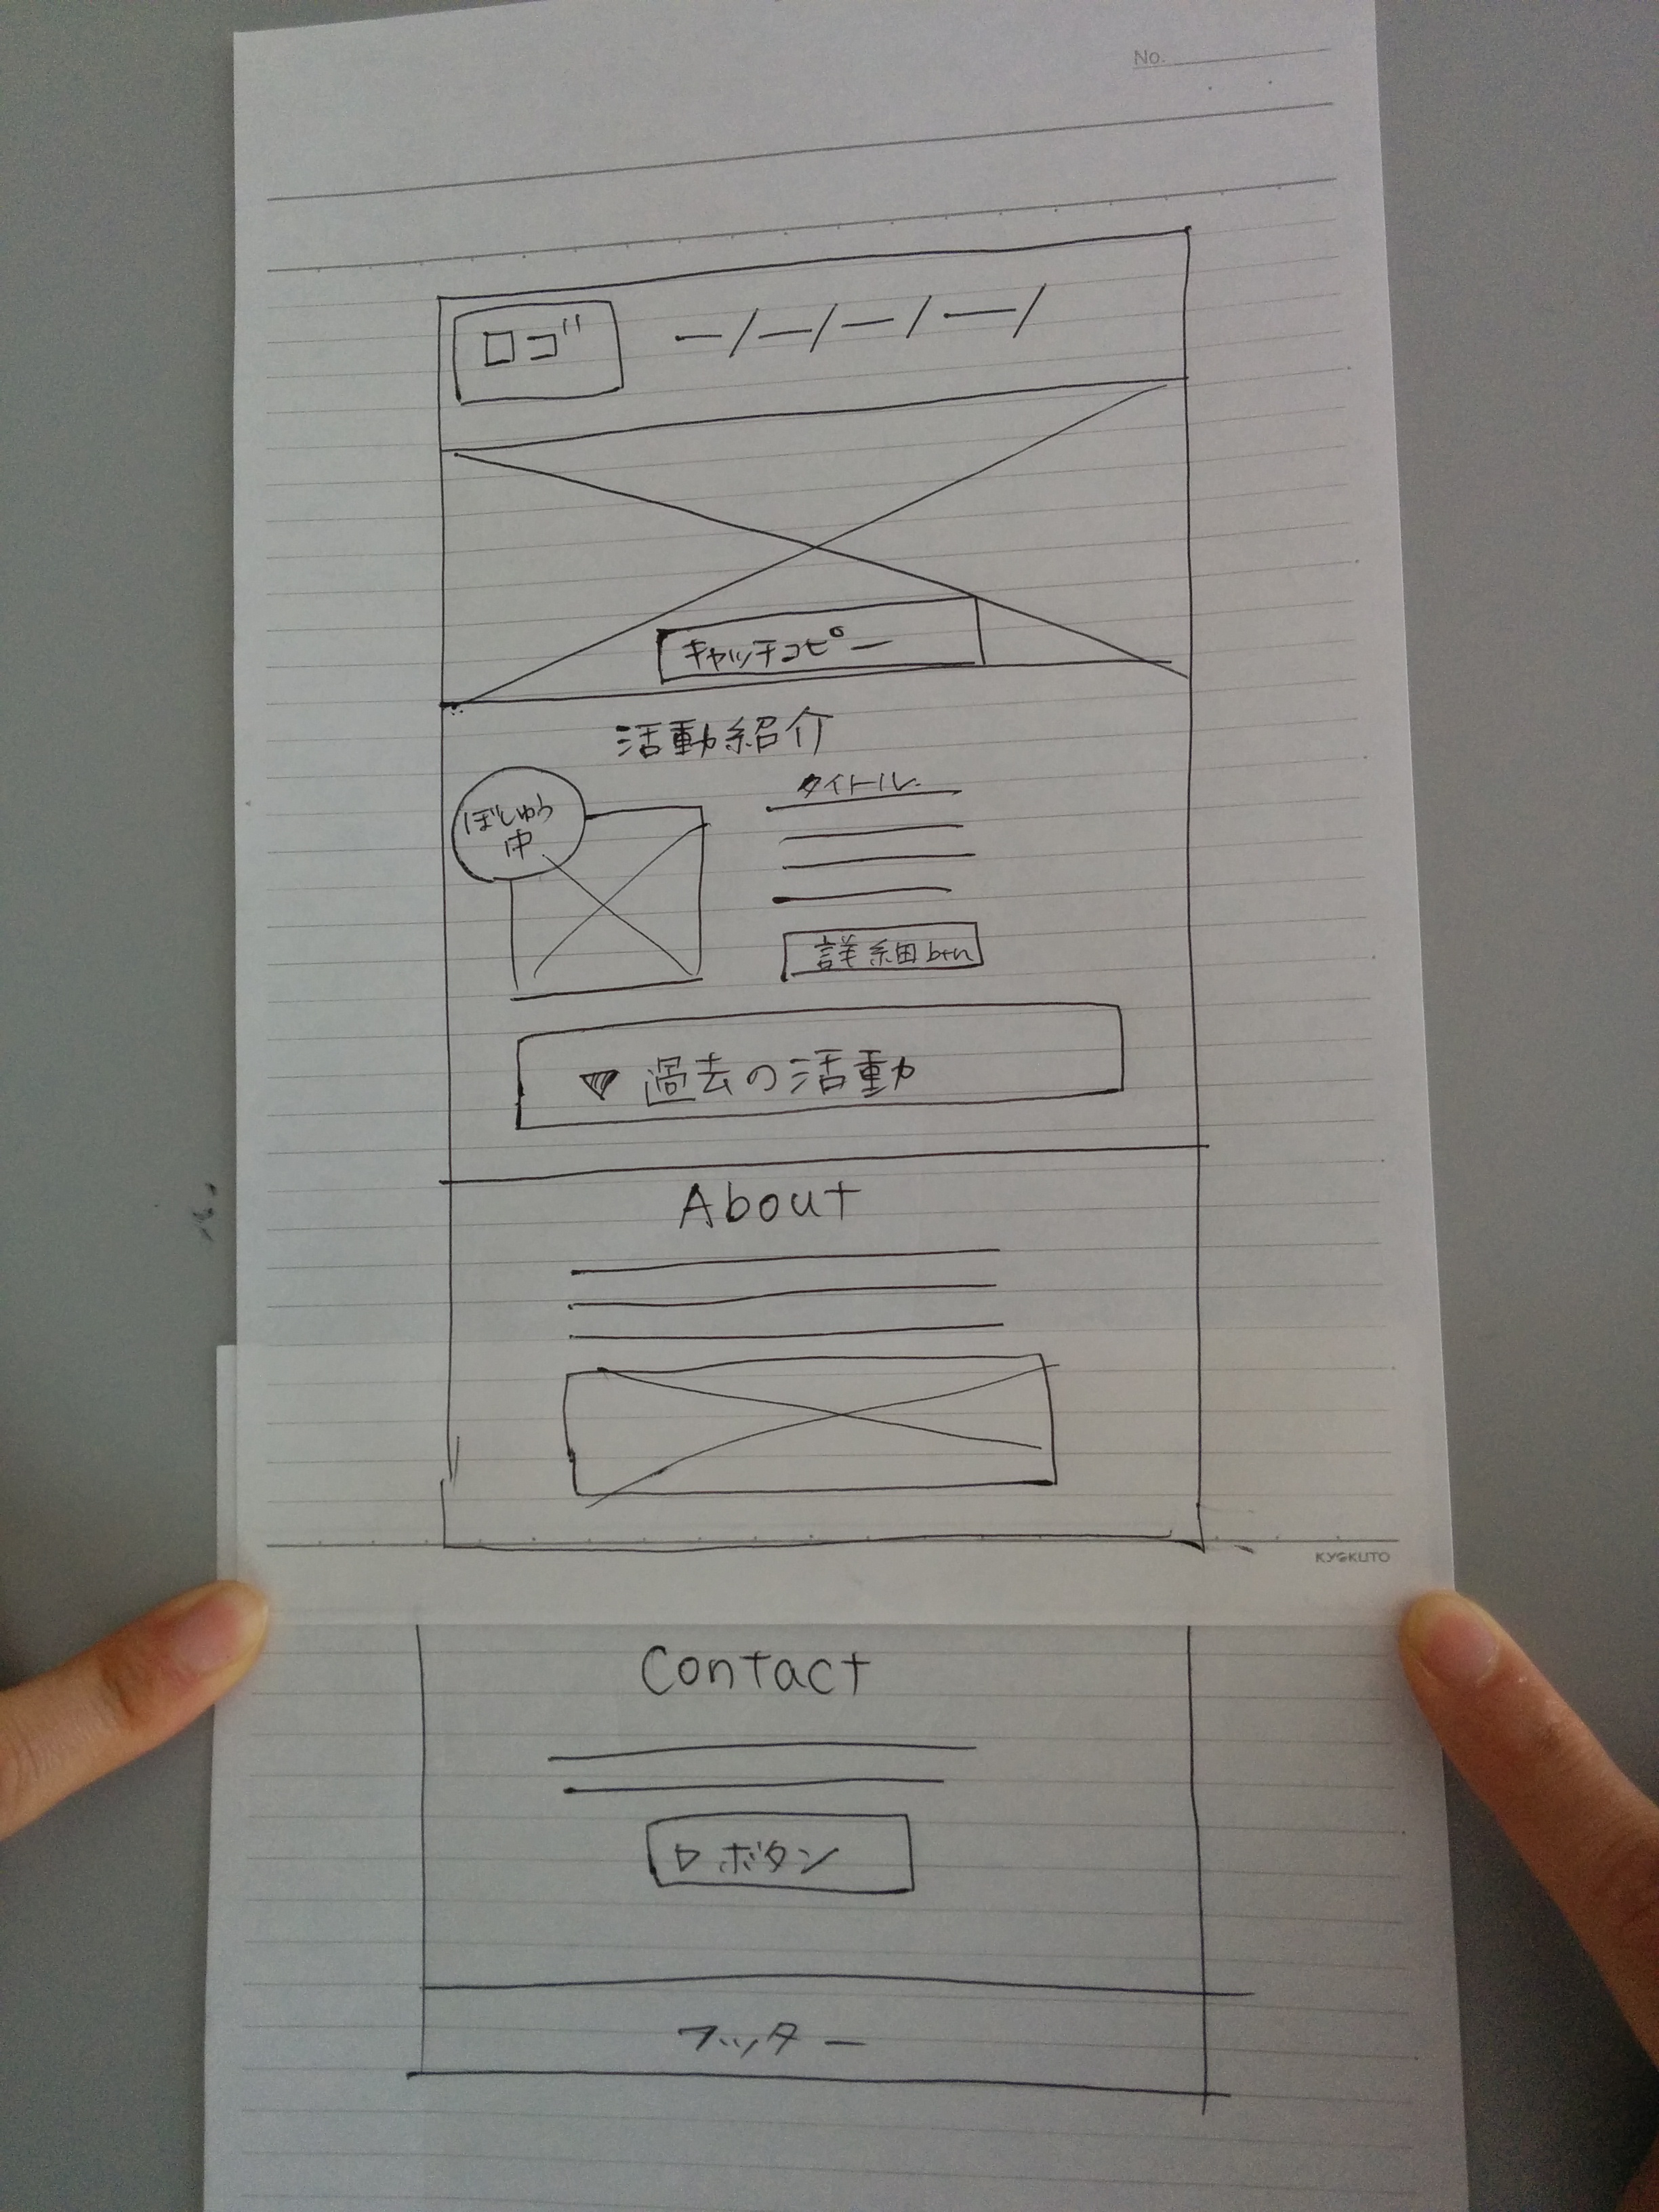 No.
ロゴ
キャッチコピー
活動紹介
ぼしゅう
中
タイトル
詳細btn
▼過去の活動
About
KYOKUTO
Contact
▷ボタン
フッター